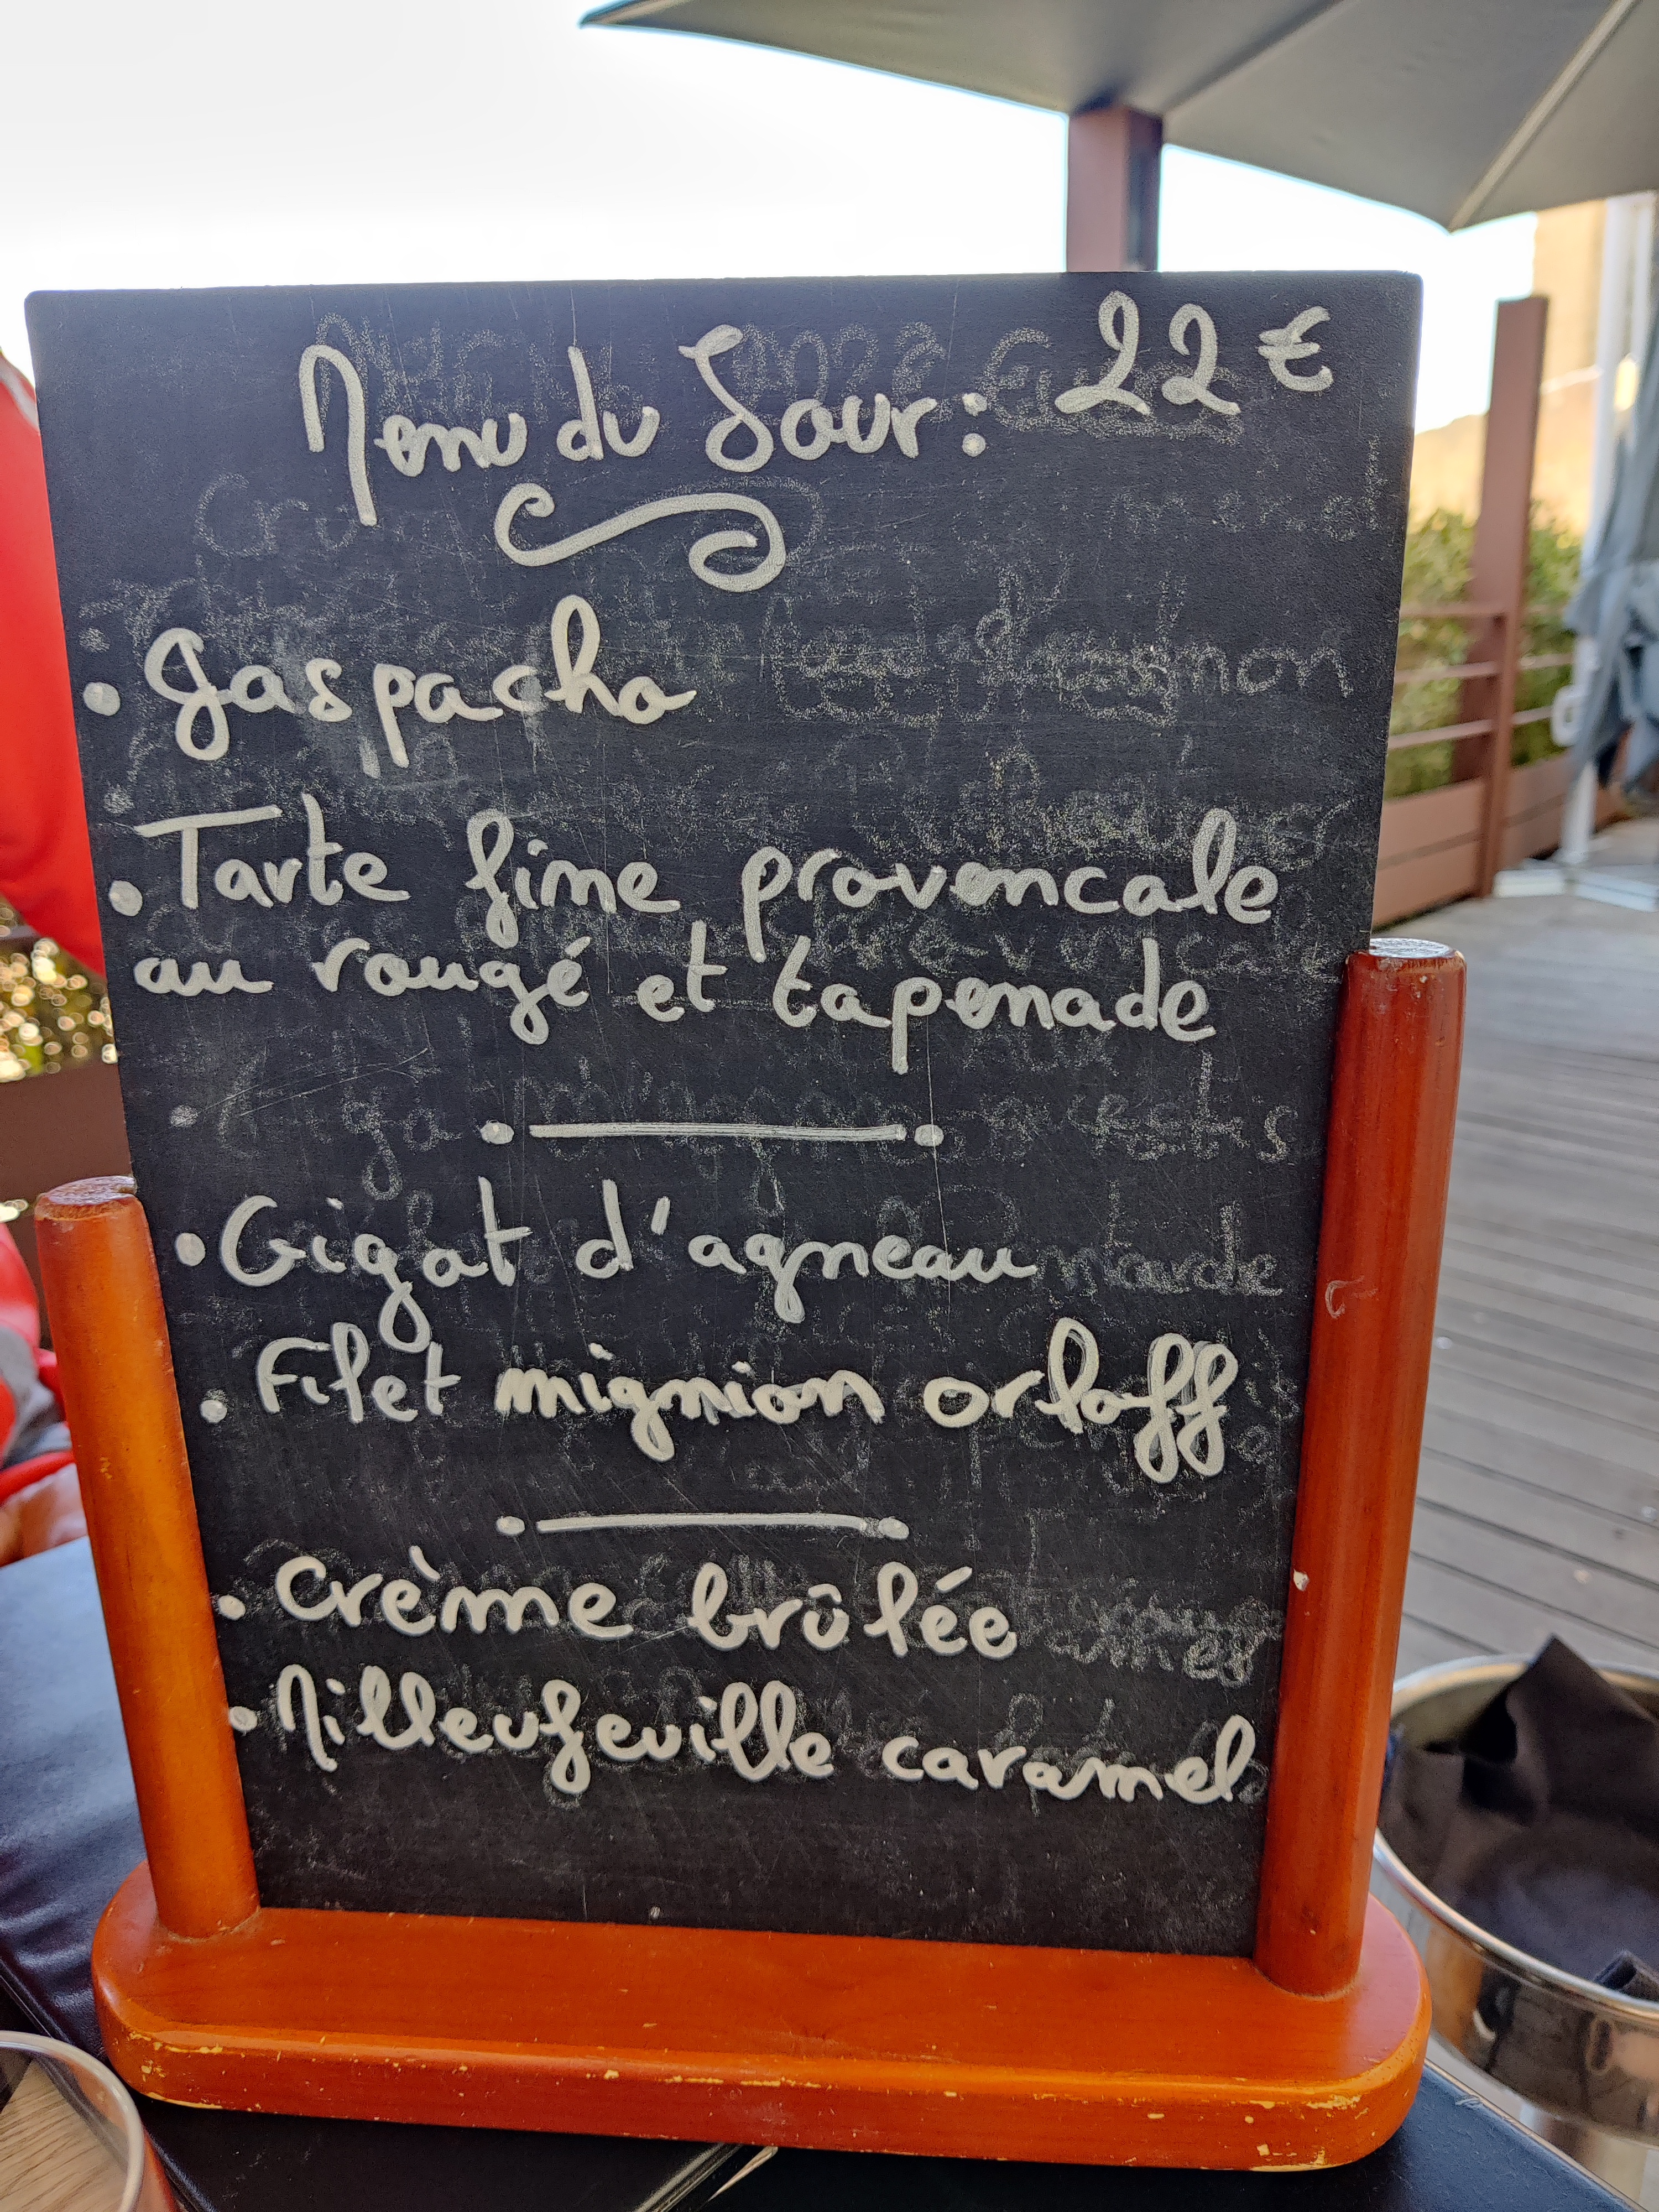 Menu du Jour : 22 €
• Gaspacho
• Tarte fine provencale
au rougé et tapenade
• Gigot d'agneau
• Filet mignion orloff
• Crème brûlée
• Milleufeuille caramel